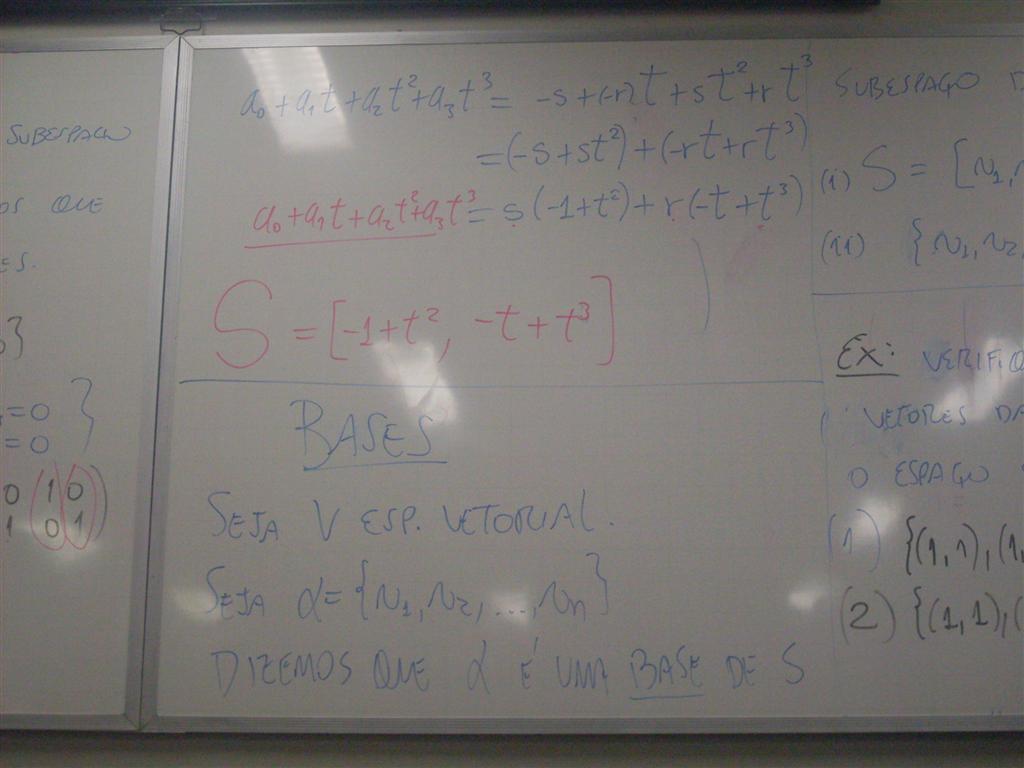 SUBESPAÇO
OS QUE
ES.
3}
=0 }
=0
0 1 0
1 0 1 )
a₀+a₁t+a₂t²+a₃t³= -s+(-r)t+st²+rt³
=(-s+st²)+(-rt+rt³)
a₀+a₁t+a₂t²+a₃t³= s(-1+t²)+r(-t+t³)
S = [-1+t², -t+t³]
BASES
SEJA V ESP. VETORIAL.
SEJA α={v₁,v₂,...,vₙ}
DIZEMOS QUE α É UMA BASE DE S
SUBESPAÇO D
(i) S = [v₁,
(ii) {v₁,v₂,
EX: VERIFIQ
VETORES DA
O ESPAÇO
(1) {(1,1),(1,
(2) {(1,1),(